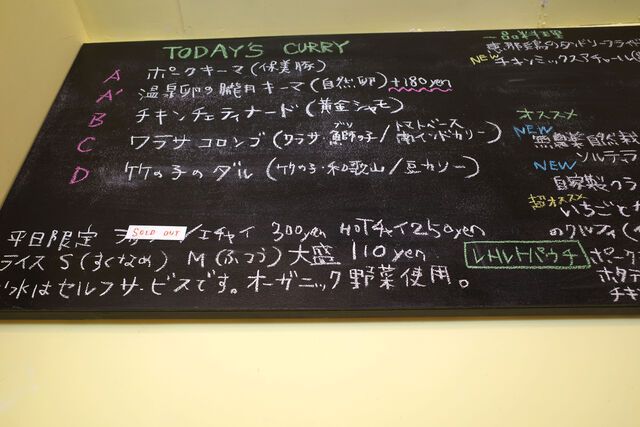 TODAY'S CURRY
A ポークキーマ (保美豚)
A' 温泉卵の朧月キーマ (自然卵) +180yen
B チキンチェティナード (黄金シャモ)
C ワラサコロンゴ (ワラサ・鰤の子 ブリ / トマトベース 南インドカリー)
D 竹の子のダル (竹の子・和歌山 / 豆カリー)
平日限定 SOLD OUT /チャイ 300yen HOTチャイ250yen
ライス S (すくなめ) M (ふつう) 大盛 110yen
水はセルフサービスです。オーガニック野菜使用。
一品料理
NEW チキンミックスアチャール
オススメ
NEW 無農薬自然栽
NEW ソルティマ
自家製クラ
超オススメ いちごとカ
のクルフィ
レトルトパウチ ポーク
ホタテ
チキ